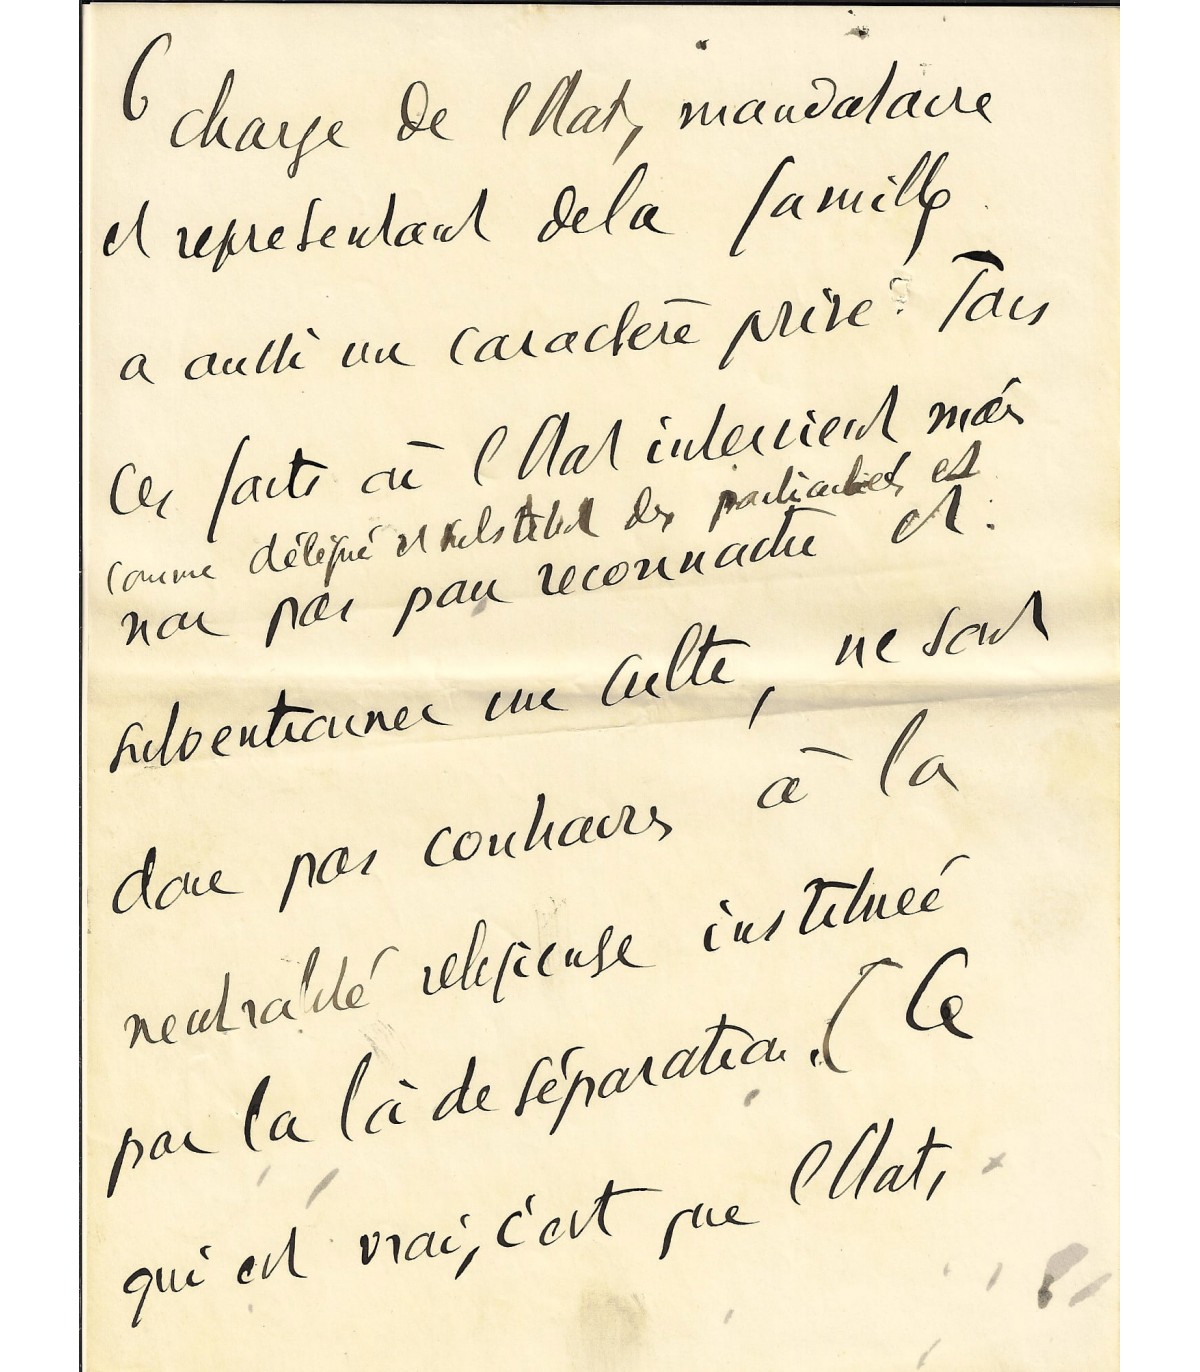 6
charge de l'Etat, mandataire
et representant de la famille
a aussi un caractère privé. Tous
ces faits où l'Etat intervient mais
comme délégué et substitut des particuliers et
non pas pour reconnaitre et
subventionner un culte, ne sont
donc pas contraires à la
neutralité religieuse instituée
par la loi de séparation. [ Ce
qui est vrai, c'est que l'Etat,